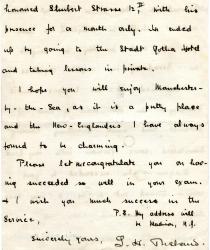 honoured Shubert Strasse 12II with his
presence for a month only. So ended
up by going to the Stadt Gotha Hotel
and taking lessons in private.
I hope you will enjoy Manchester-
by-the-Sea, as it is a pretty place
and the New-Englanders I have always
found to be charming.
Please let me congratulate you on hav-
ing succeeded so well in your exam.
& I wish you much success in the
Service,
P.S. My address will
be Madison, N.J.
Sincerely yours,